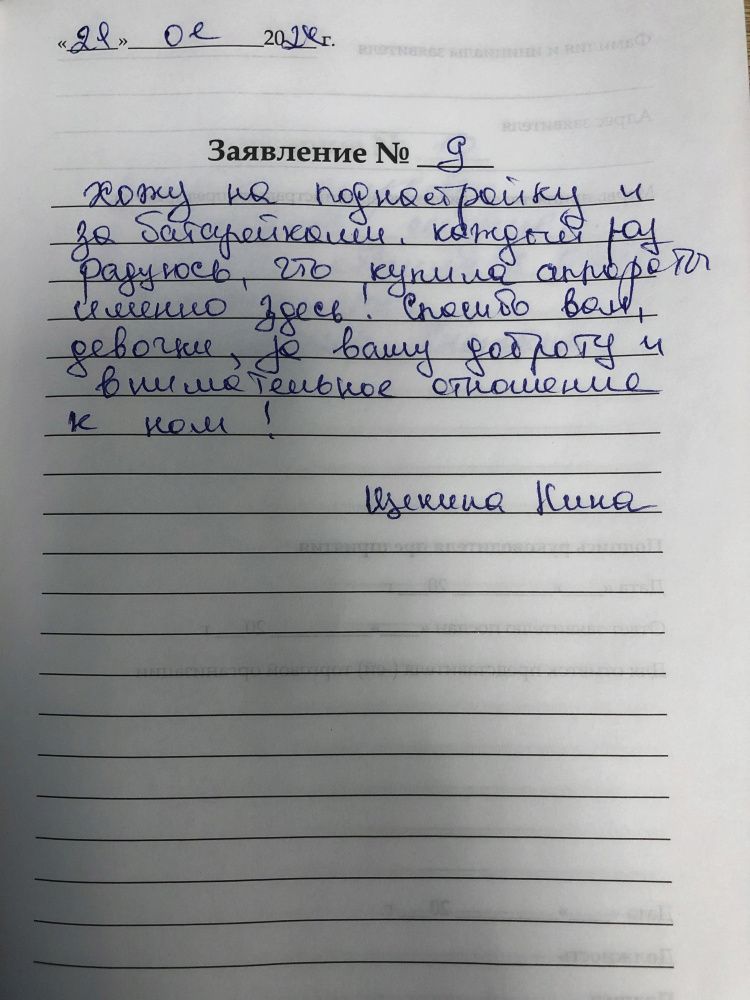 «21» 02 2024г.
Заявление № 9
Хожу на поднастройку и
за батарейками. каждый раз
радуюсь, что купила аппараты
именно здесь! Спасибо вам,
девочки, за вашу доброту и
внимательное отношение
к нам!
Щекина Нина